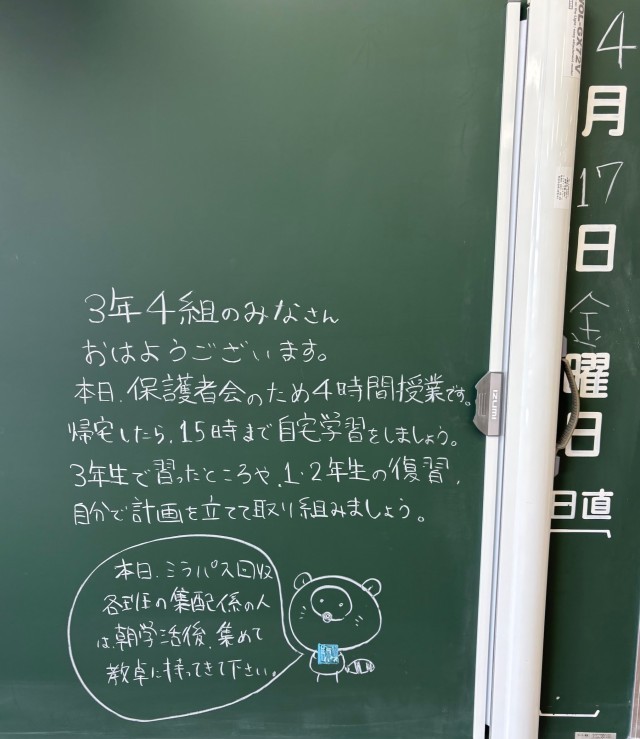 3年4組のみなさん
おはようございます。
本日、保護者会のため4時間授業です。
帰宅したら、15時まで自宅学習をしましょう。
3年生で習ったところや、1・2年生の復習、
自分で計画を立てて取り組みましょう。
本日、ミラパス回収
各班の集配係の人
は、朝学活後、集めて
教卓に持ってきて下さい。
4月17日金曜日
日直
IZUMI
VOL-GX72V